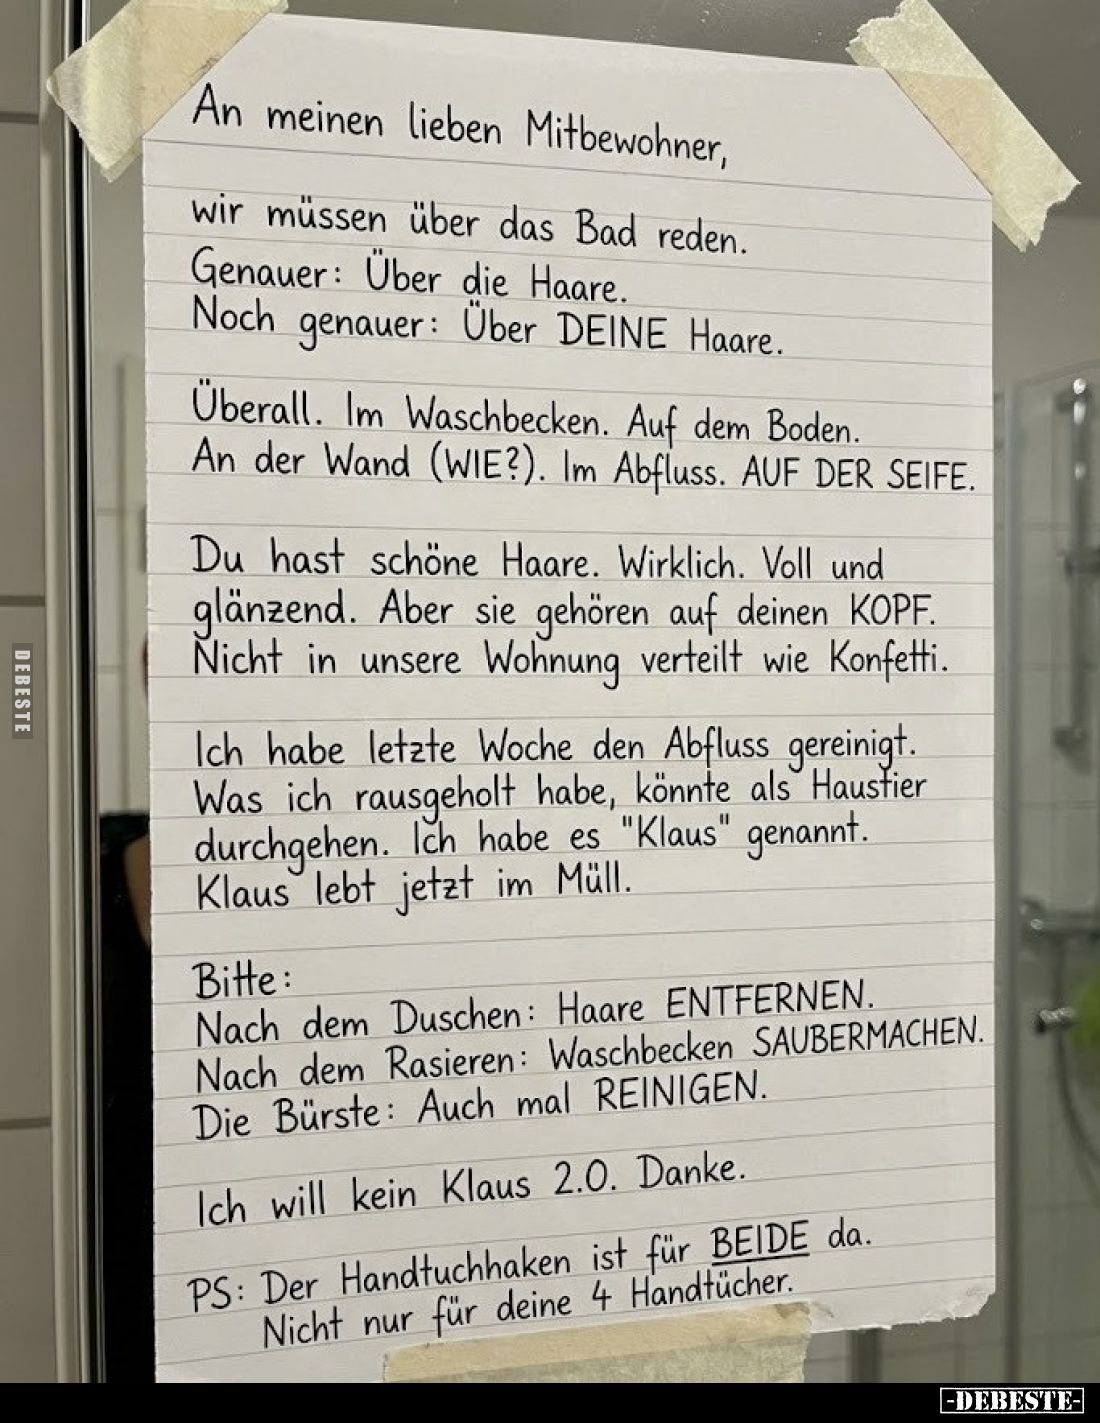 An meinen lieben Mitbewohner,
wir müssen über das Bad reden.
Genauer: Über die Haare.
Noch genauer: Über DEINE Haare.
Überall. Im Waschbecken. Auf dem Boden.
An der Wand (WIE?). Im Abfluss. AUF DER SEIFE.
Du hast schöne Haare. Wirklich. Voll und
glänzend. Aber sie gehören auf deinen KOPF.
Nicht in unsere Wohnung verteilt wie Konfetti.
Ich habe letzte Woche den Abfluss gereinigt.
Was ich rausgeholt habe, könnte als Haustier
durchgehen. Ich habe es "Klaus" genannt.
Klaus lebt jetzt im Müll.
Bitte:
Nach dem Duschen: Haare ENTFERNEN.
Nach dem Rasieren: Waschbecken SAUBERMACHEN.
Die Bürste: Auch mal REINIGEN.
Ich will kein Klaus 2.0. Danke.
PS: Der Handtuchhaken ist für BEIDE da.
Nicht nur für deine 4 Handtücher.
DEBESTE
-DEBESTE-